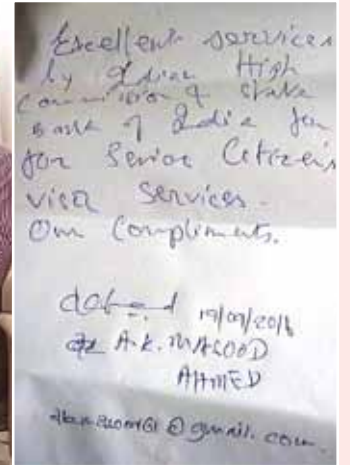 Excellent services
by Indian High
Commission & State
Bank of India for
for Senior Citizen
visa Services.
Our Compliments.
19/09/2016
A.K. MASOOD
AHMED
@gmail.com